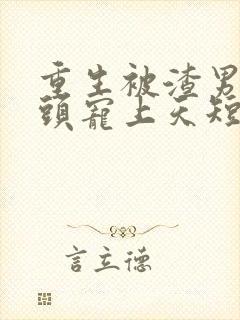 重生被渣男
頭寵上天短
言立德